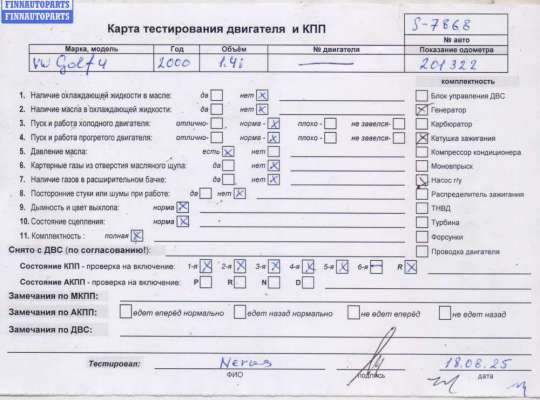 FINNAUTOPARTS
FINNAUTOPARTS
Карта тестирования двигателя и КПП
S-7868
№ авто
Марка, модель Год Объём № двигателя Показание одометра
VW Golf 4 2000 1.4i 201322
комплектность
1. Наличие охлаждающей жидкости в масле: да нет X
Блок управления ДВС
2. Наличие масла в охлаждающей жидкости: да нет X
X Генератор
3. Пуск и работа холодного двигателя: отлично- норма - X плохо - не завелся-
Карбюратор
4. Пуск и работа прогретого двигателя: отлично- норма - X плохо - не завелся-
X Катушка зажигания
5. Давление масла: есть X нет
Компрессор кондиционера
6. Картерные газы из отверстия масляного щупа: да нет X
Моновпрыск
7. Наличие газов в расширительном бачке: да нет X
X Насос г/у
8. Посторонние стуки или шумы при работе: да нет X
Распределитель зажигания
9. Дымность и цвет выхлопа: норма X
ТНВД
10. Состояние сцепления: норма X
Турбина
11. Комплектность : полная X
Форсунки
Снято с ДВС (по согласованию!):
Проводка двигателя
Состояние КПП - проверка на включение: 1-я X 2-я X 3-я X 4-я X 5-я X 6-я R X
Состояние АКПП - проверка на включение: P R N D
Замечания по МКПП:
Замечания по АКПП: едет вперёд нормально едет назад нормально не едет вперёд не едет назад
Замечания по ДВС:
Тестировал: 18.08.25
ФИО подпись дата